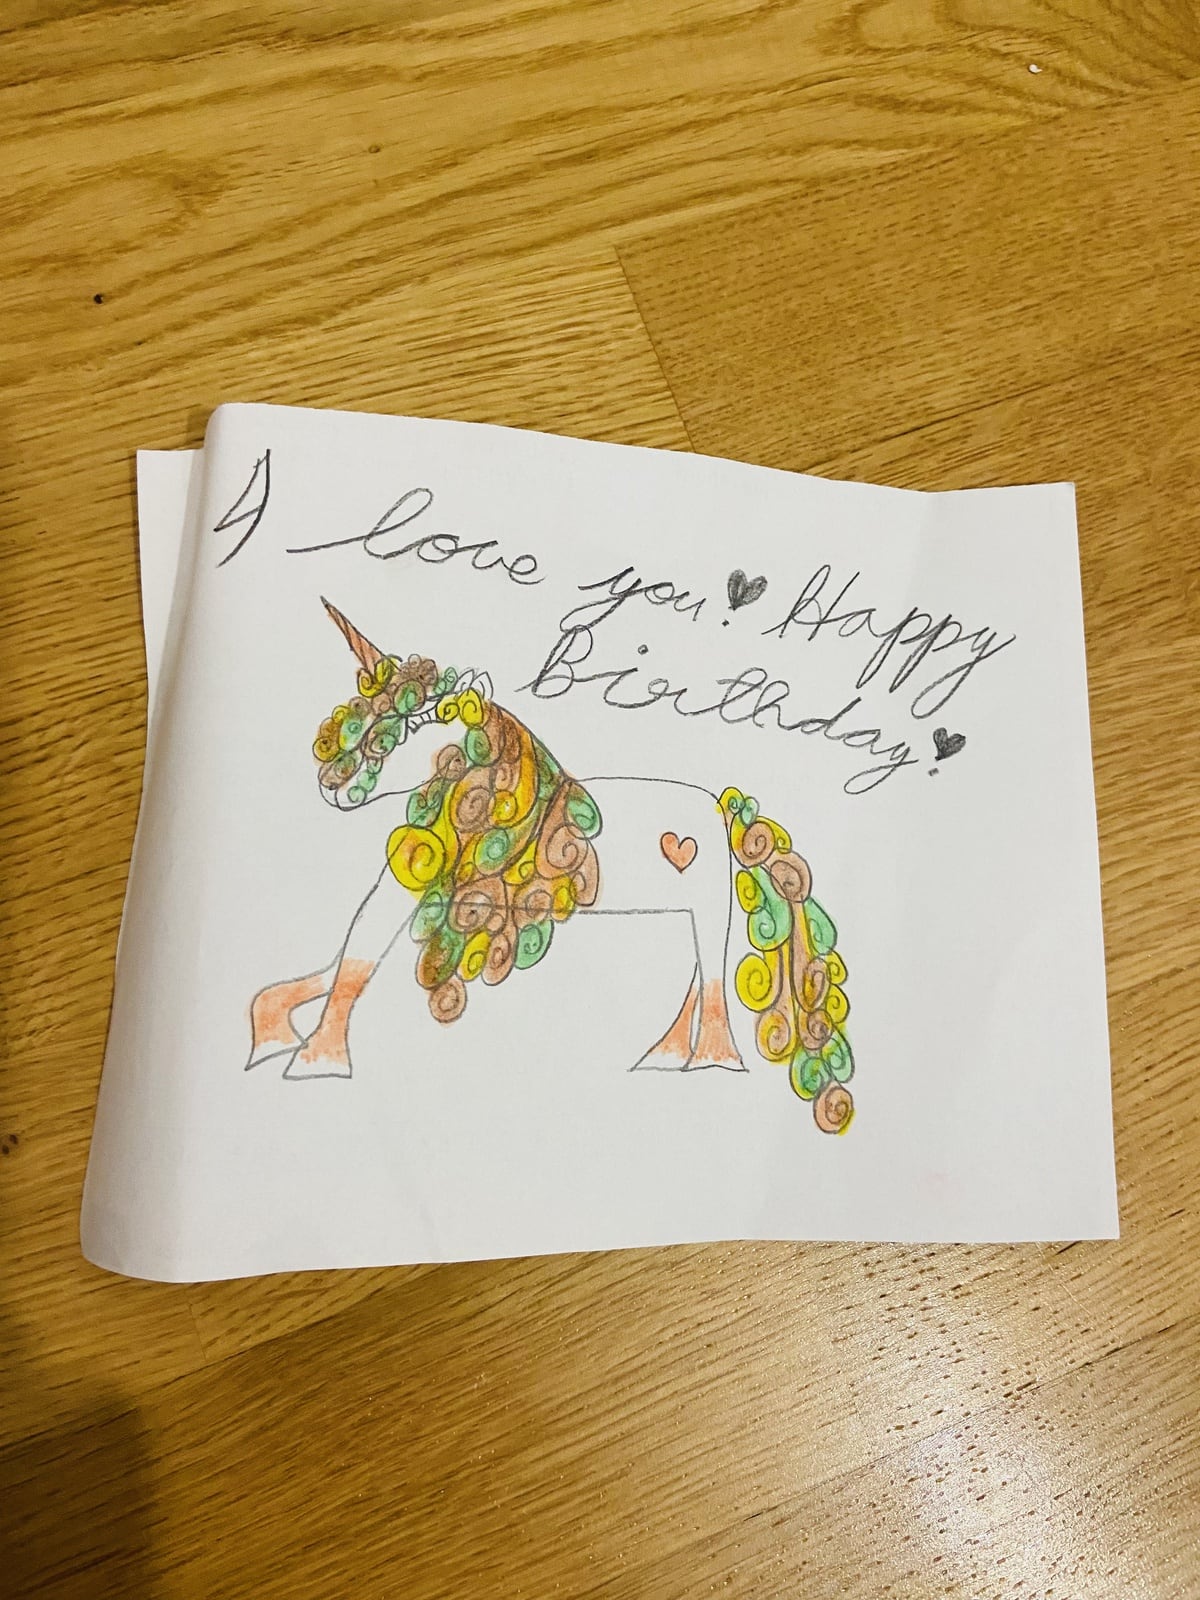 I love you! Happy
Birthday!